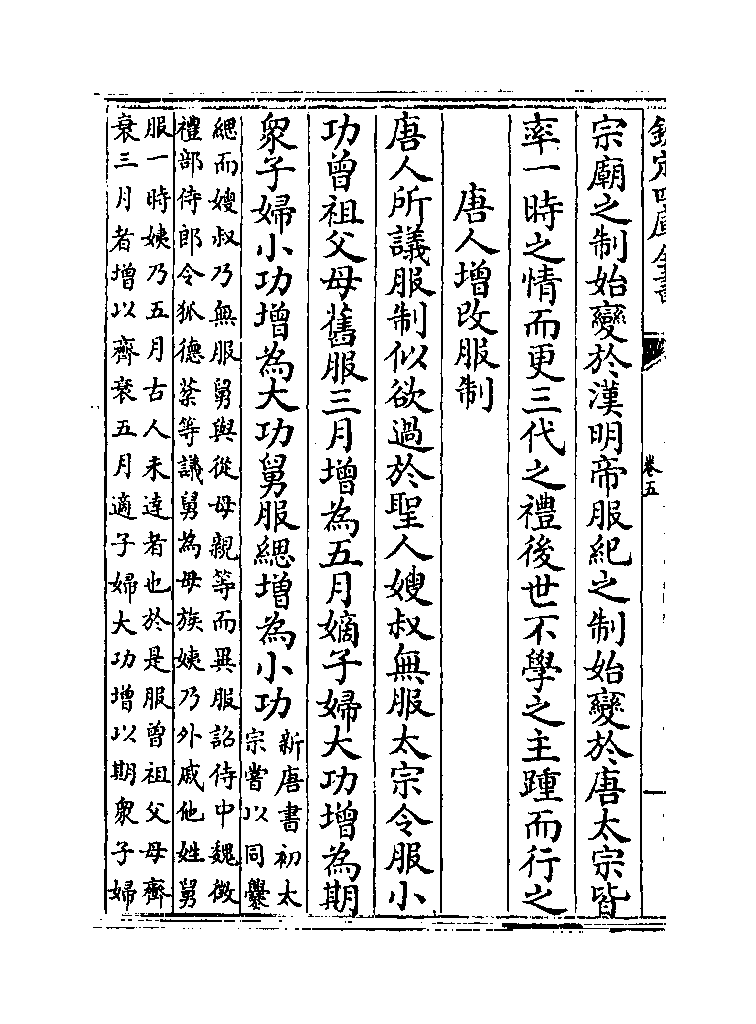 欽定四庫全書
卷五
宗廟之制始變於漢明帝服紀之制始變於唐太宗皆
率一時之情而更三代之禮後世不學之主踵而行之
唐人增改服制
唐人所議服制似欲過於聖人嫂叔無服太宗令服小
功曾祖父母舊服三月增為五月嫡子婦大功增為期
衆子婦小功增為大功舅服緦增為小功
新唐書初太
宗嘗以同爨
緦而嫂叔乃無服舅與從母親等而異服詔侍中魏徴
禮部侍郎令狐德棻等議舅為母族姨乃外戚他姓舅
服一時姨乃五月古人未達者也於是服曾祖父母齊
衰三月者增以齊衰五月適子婦大功增以期衆子婦